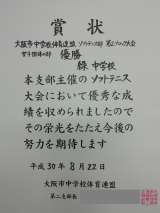 賞状
大阪市中学校体育連盟 ソフトテニス部 第2ブロック大会
男子団体の部 優勝
緑 中学校
本支部主催のソフトテニス
大会において優秀な成
績を収められましたので
その栄光をたたえ今後の
努力を期待します
平成30年8月22日
大阪市中学校体育連盟
第二支部長